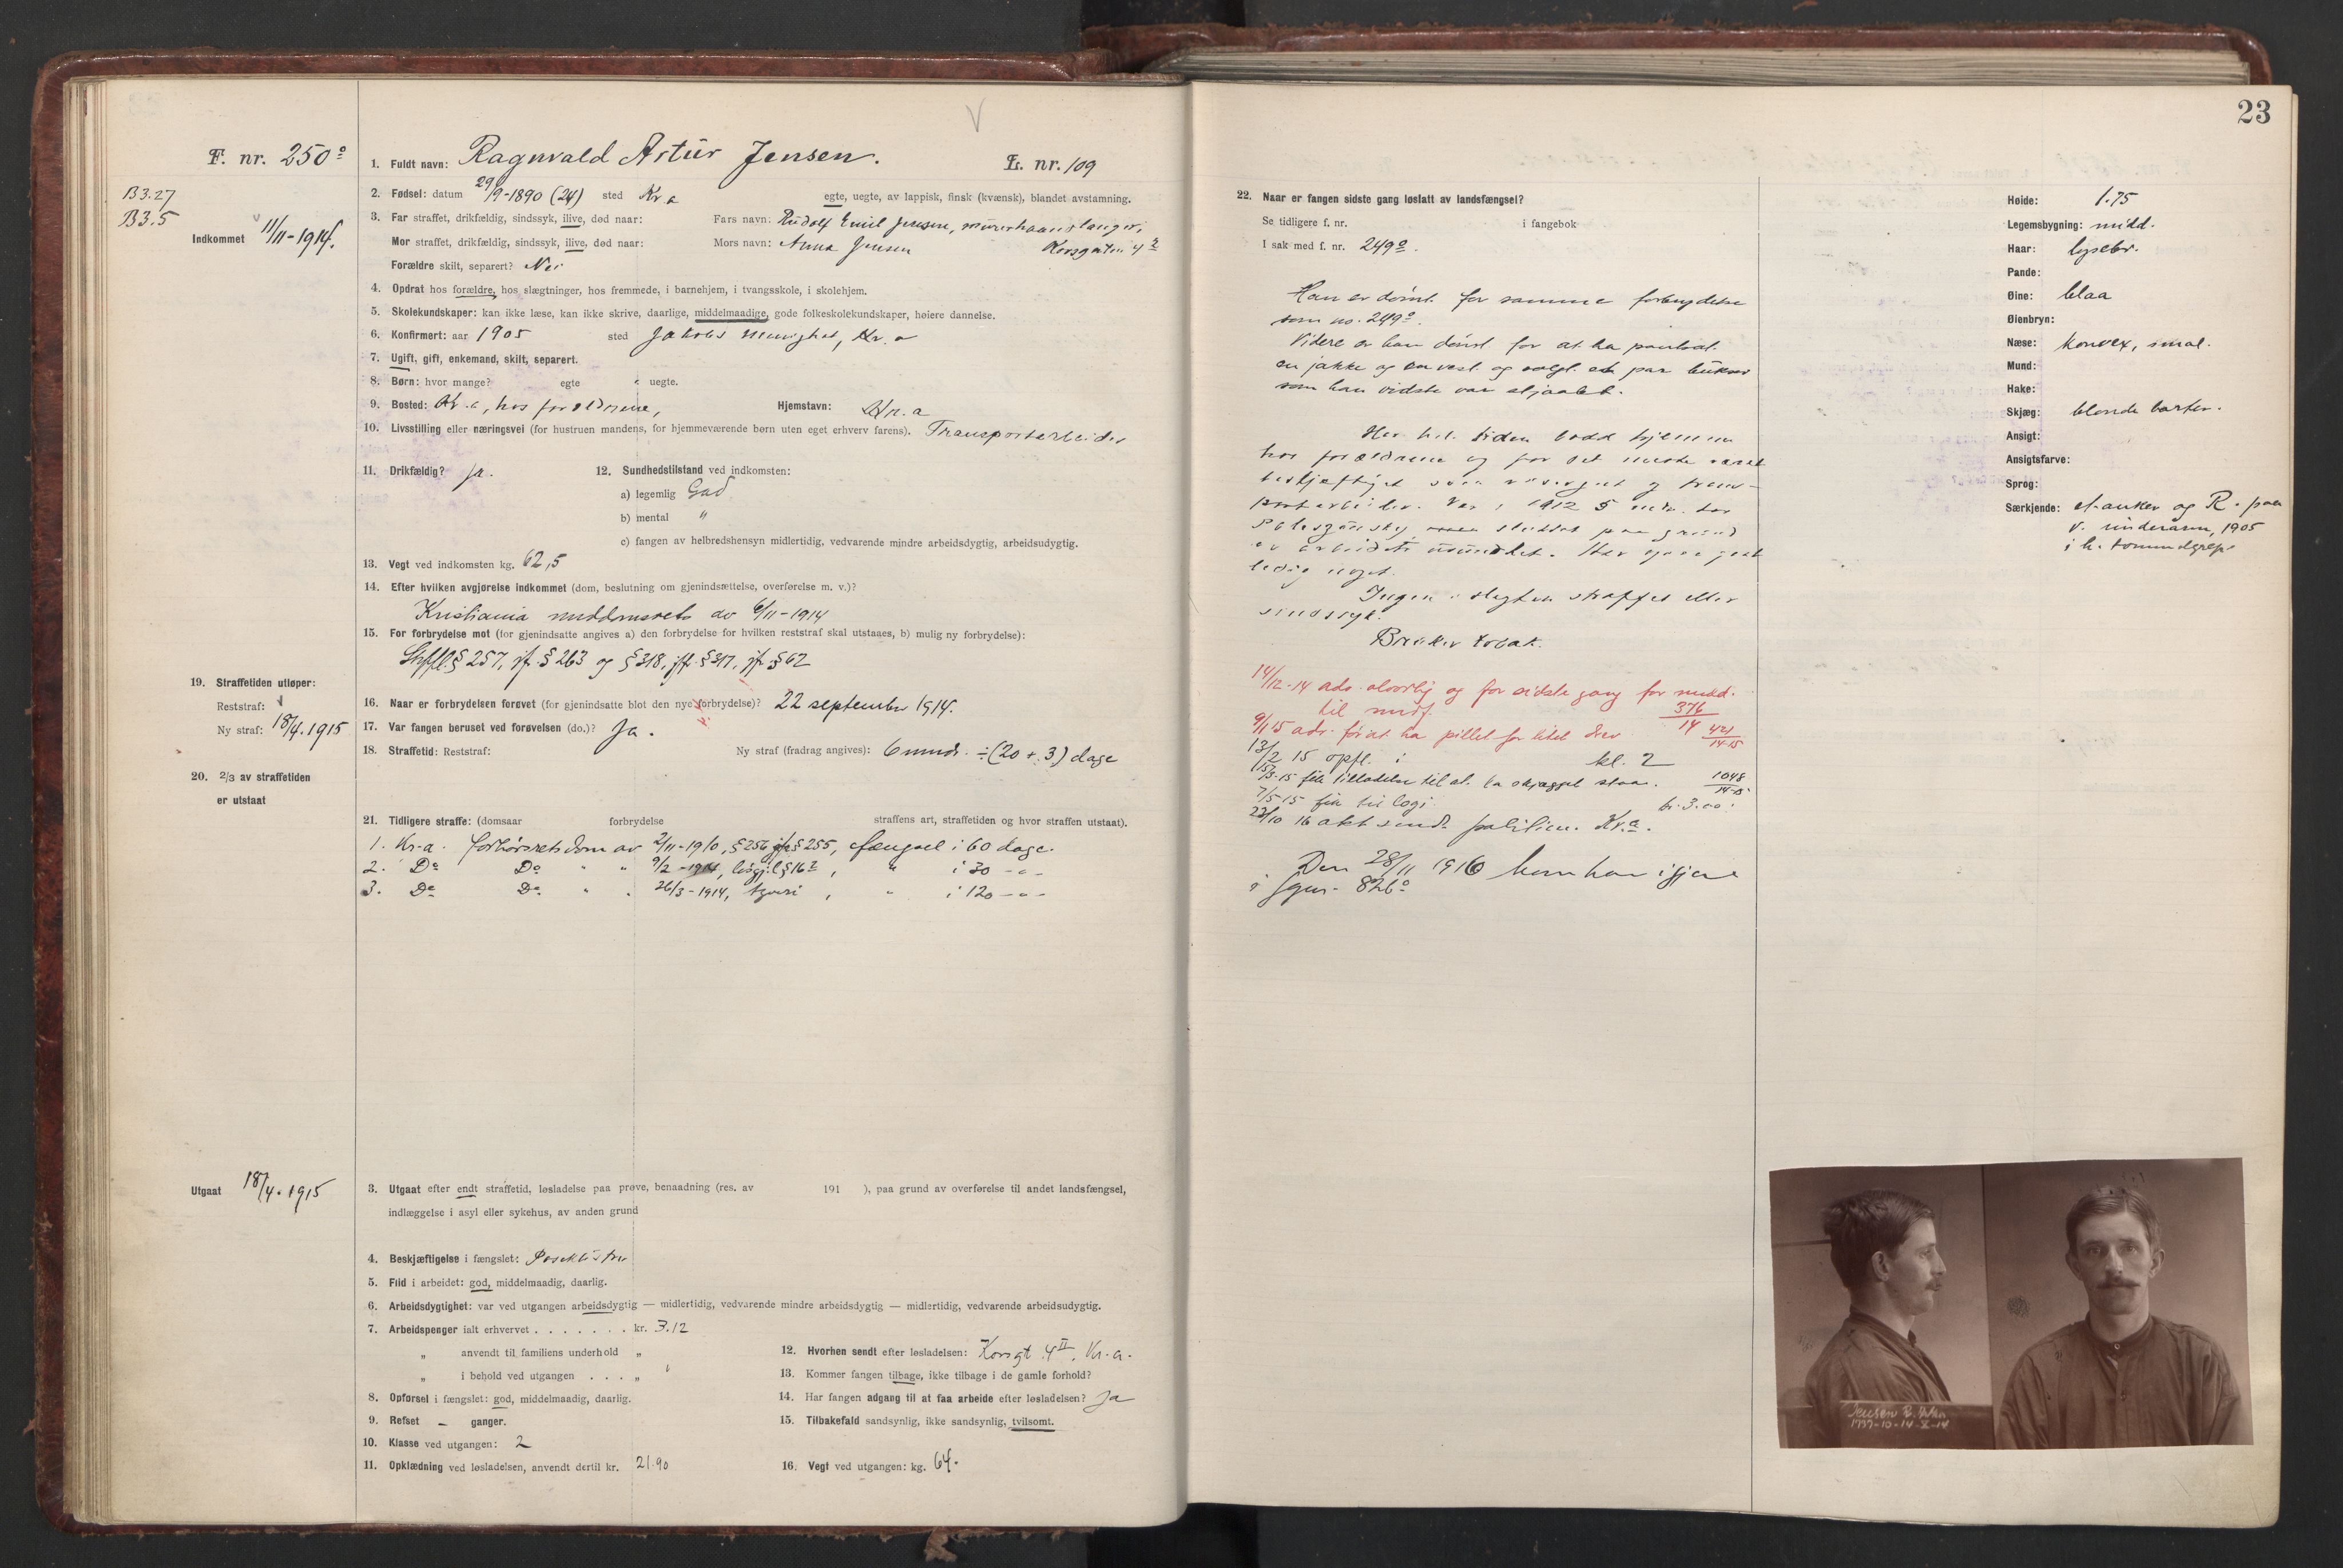 F. nr. 250a
B3.27
B3.5
Indkommet 11/11-1914.
1. Fuldt navn: Ragnvald Artur Jensen.
L. nr. 109
2. Fødsel: datum 29/9-1890 (24) sted Kr a egte, uegte, av lappisk, finsk (kvænsk), blandet avstamning.
3. Far straffet, drikfældig, sindssyk, ilive, død naar: Fars navn: Rudolf Emil Jensen, murerhaandlanger,
Mor straffet, drikfældig, sindssyk, ilive, død naar: Mors navn: Anna Jensen Korsgaten 4
Forældre skilt, separert? Nei
4. Opdrat hos forældre, hos slægtninger, hos fremmede, i barnehjem, i tvangsskole, i skolehjem.
5. Skolekundskaper: kan ikke læse, kan ikke skrive, daarlige, middelmaadige, gode folkeskolekundskaper, høiere dannelse.
6. Konfirmert: aar 1905 sted Jakobs menighet, Kr. a
7. Ugift, gift, enkemand, skilt, separert.
8. Børn: hvor mange? egte " uegte.
9. Bosted: Kr. a, hos forældrene, Hjemstavn: Kr. a
10. Livsstilling eller næringsvei (for hustruen mandens, for hjemmeværende børn uten eget erhverv farens). Transportarbeider
11. Drikfældig? Ja.
12. Sundhedstilstand ved indkomsten:
a) legemlig God
b) mental "
c) fangen av helbredshensyn midlertidig, vedvarende mindre arbeidsdygtig, arbeidsudygtig.
13. Vegt ved indkomsten kg. 62,5
14. Efter hvilken avgjørelse indkommet (dom, beslutning om gjenindsættelse, overførelse m. v.)?
Kristiania meddomsrets av 6/11-1914
15. For forbrydelse mot (for gjenindsatte angives a) den forbrydelse for hvilken reststraf skal utstaaes, b) mulig ny forbrydelse):
Strffl. § 257, jf. § 263 og § 318, jfr. § 317, jf. § 62
16. Naar er forbrydelsen forøvet (for gjenindsatte blot den nye forbrydelse)? 22 september 1914.
17. Var fangen beruset ved forøvelsen (do.)? Ja.
18. Straffetid: Reststraf: Ny straf (fradrag angives): 6 mndr. ÷ (20 + 3) dage
19. Straffetiden utløper:
Reststraf:
Ny straf: 18/4.1915
20. 2/3 av straffetiden
er utstaat
21. Tidligere straffe: (domsaar forbrydelse straffens art, straffetiden og hvor straffen utstaat).
1. Kr-a. forhørsretsdom av 2/11-1910, § 256 jfr § 255, fængsel i 60 dage.
2. Do Do " " 9/2-1914, løsgjl § 16 , " i 30 - " -
3. Do Do " " 26/3-1914, tyveri , " i 120 - " -
Utgaat 18/4.1915
3. Utgaat efter endt straffetid, løsladelse paa prøve, benaadning (res. av 191 ), paa grund av overførelse til andet landsfængsel,
indlæggelse i asyl eller sykehus, av anden grund
4. Beskjæftigelse i fængslet: Poseklistrer
5. Flid i arbeidet: god, middelmaadig, daarlig.
6. Arbeidsdygtighet: var ved utgangen arbeidsdygtig — midlertidig, vedvarende mindre arbeidsdygtig — midlertidig, vedvarende arbeidsudygtig.
7. Arbeidspenger ialt erhvervet . . . . . . . kr. 3.12
" anvendt til familiens underhold "
" i behold ved utgangen . . . . "
8. Opførsel i fængslet: god, middelmaadig, daarlig.
9. Refset – ganger.
10. Klasse ved utgangen: 2
11. Opklædning ved løsladelsen, anvendt dertil kr. 21.90
12. Hvorhen sendt efter løsladelsen: Korsgt. 4 II, Kr. a.
13. Kommer fangen tilbage, ikke tilbage i de gamle forhold?
14. Har fangen adgang til at faa arbeide efter løsladelsen? Ja
15. Tilbakefald sandsynlig, ikke sandsynlig, tvilsomt.
16. Vegt ved utgangen: kg. 64.
23
22. Naar er fangen sidste gang løslatt av landsfængsel?
Se tidligere f. nr. i fangebok
I sak med f. nr. 249a.
Han er dømt for samme forbrydelse
som no. 249a.
Videre er han dømt for at ha pantsat
en jakke og en vest og solgt et par bukser
som han vidste var stjaalet.
Har hele tiden bodd hjemme
hos forældrene og for det meste været
beskjæftiget som visergut og trans-
portarbeider. Var i 1912 5 mdr. hos
sluttet paa grund
av arbeidets usundhet. Har ogsaa gaat
ledig noget.
Ingen i slegten straffet eller
sindssyk.
Bruker tobak.
14/12-14 adv. alvorlig og for sidste gang for medd.
til medf. 376/14
9/1 15 adv. for at ha pillet for litet drev 421/14-15
13/2 15 opfl. i kl. 2
15/3-15 fik tilladelse til at la skjægget staa. 1048/14-15
7/5 15 fik til logi kr. 3.00.
23/10 16 akt sendt politiet. Kr.a.
Den 28/11 1916 kom han igjen
i fgnr. 826a
Høide: 1.75
Legemsbygning: midd.
Haar: lysebr.
Pande:
Øine: blaa
Øienbryn:
Næse: konvex, smal.
Mund:
Hake:
Skjæg: blonde barter.
Ansigt:
Ansigtsfarve:
Sprog:
Særkjende: et anker og R. paa
v. underarm, 1905
i h. tommelgrep.
Jensen R. Artur
1737-10-14-X-14